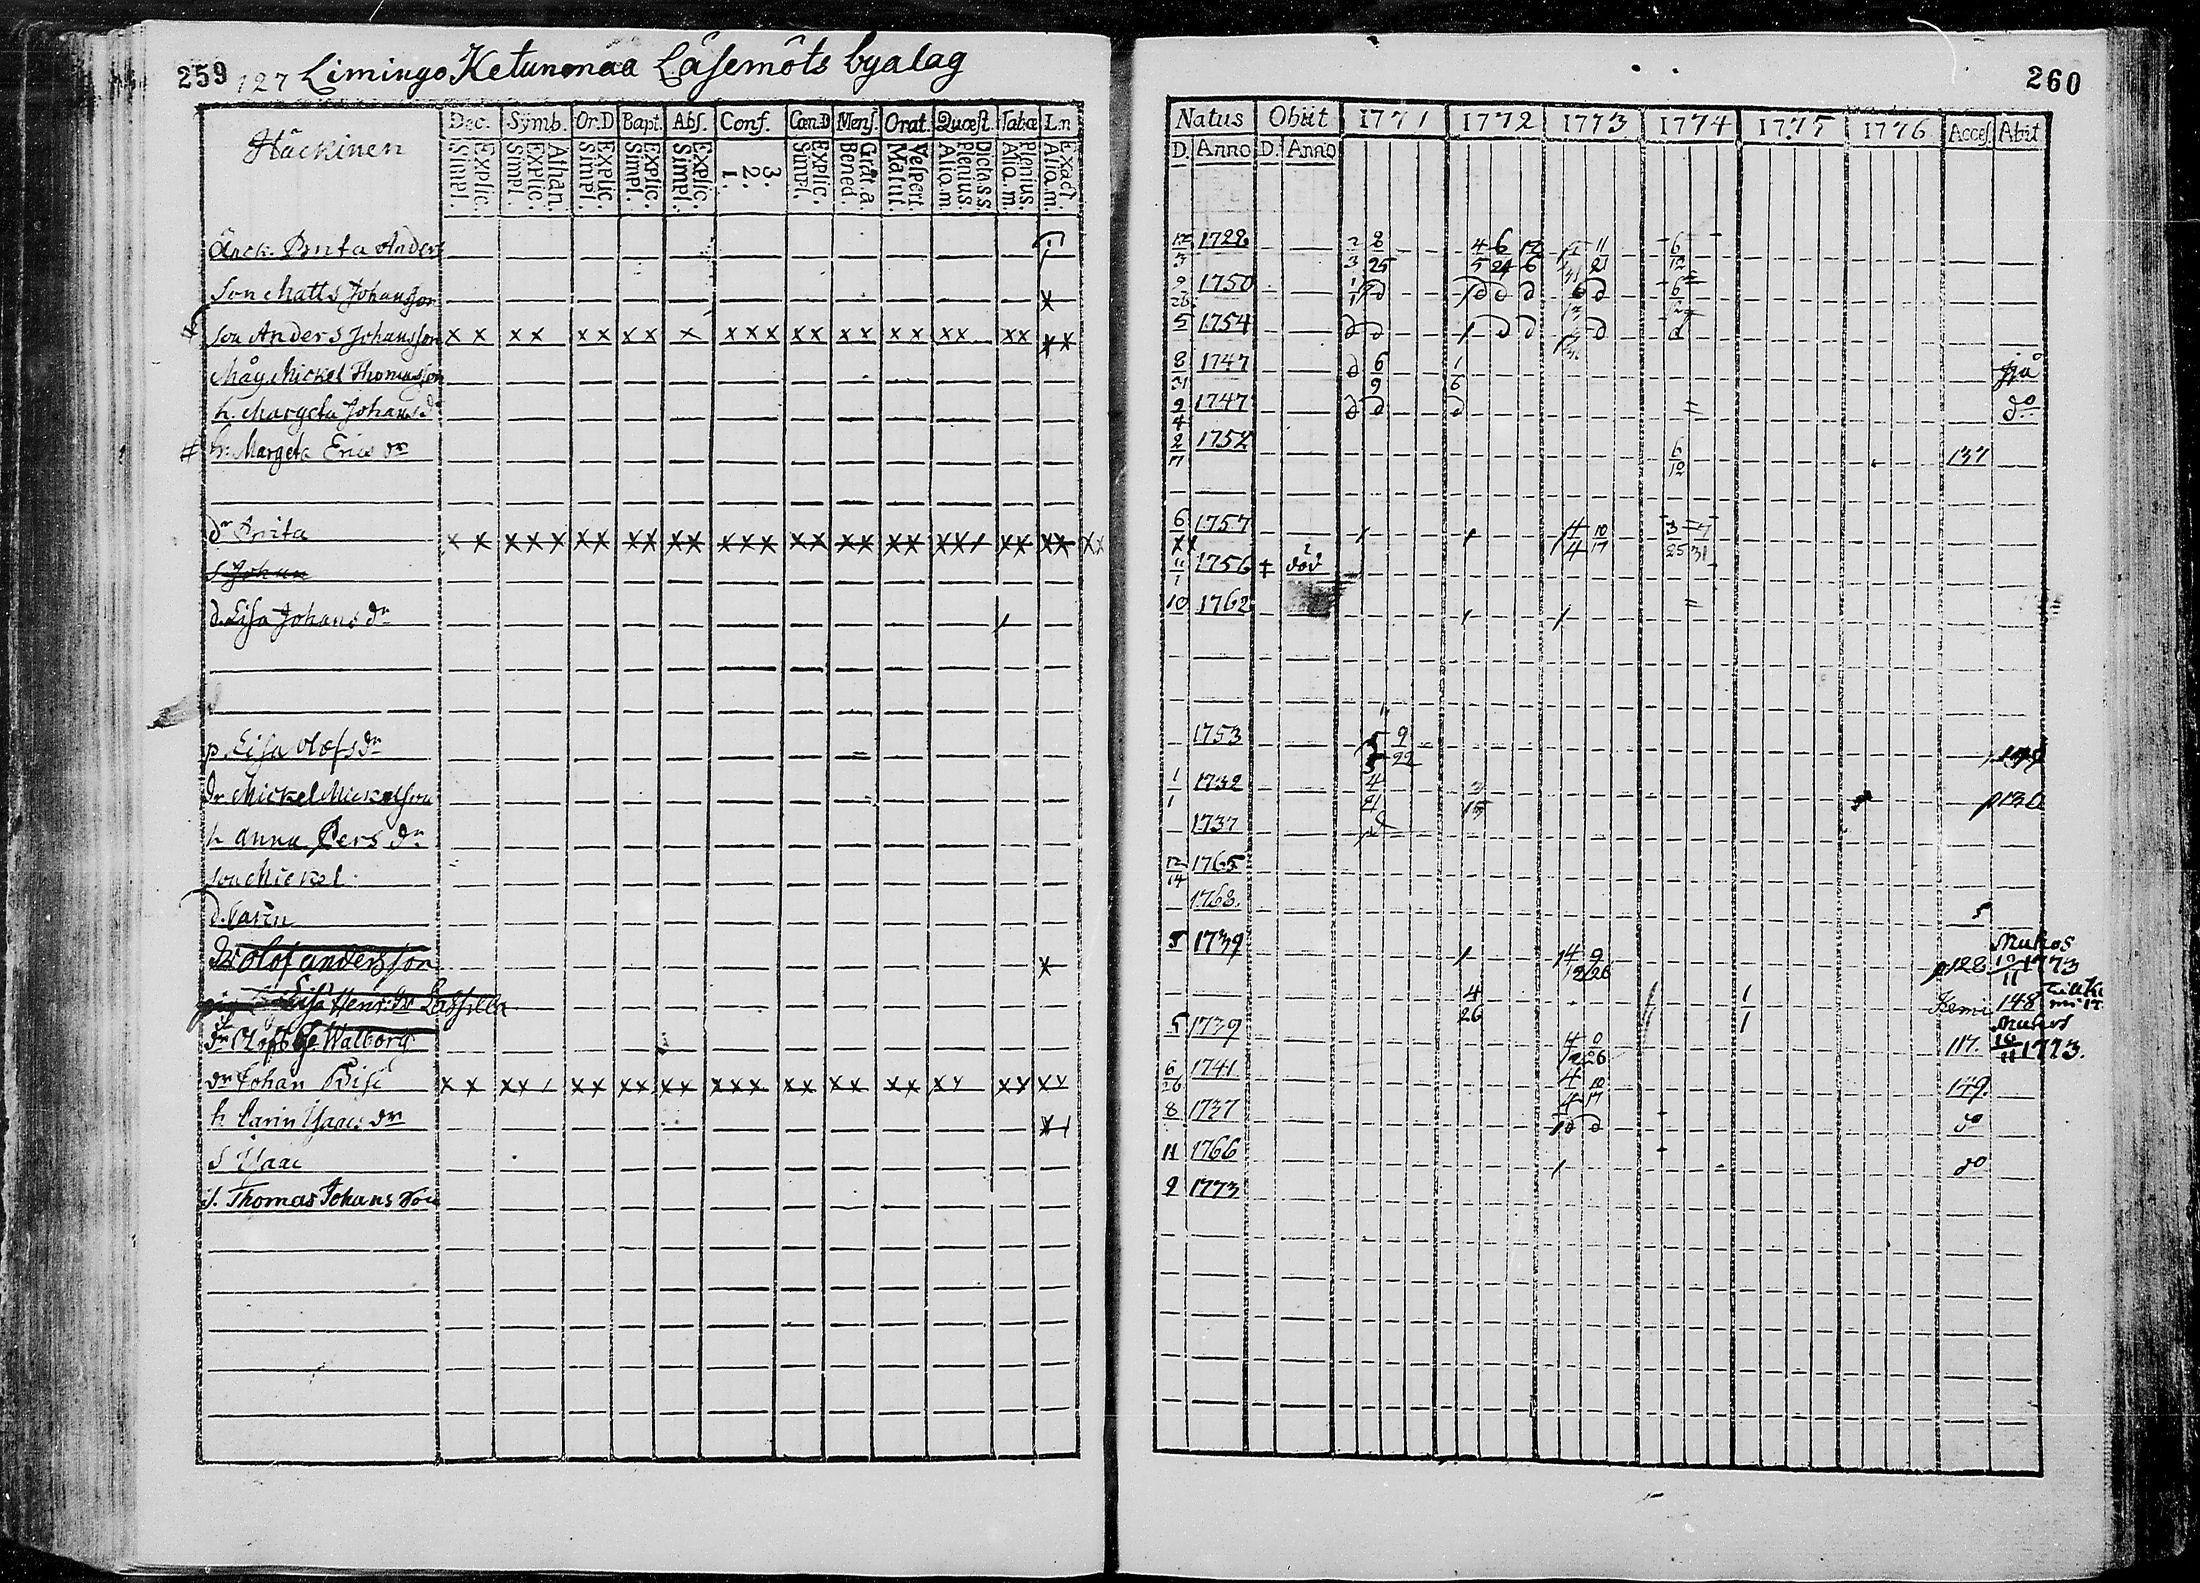 259 127 Limingo Ketunenaa Läsemöts byalag
Häckinen
Dec. Symb. Or.D Bapt. Abs. Conf. Cœn.D Mens. Orat. Quæst. Tabæ L.n
Explic. Simpl. Athan. Explic. Simpl. Explic. Simpl. Explic. Simpl. Explic. Simpl. 3. 2. 1. Explic. Simpl. Grat.a. Bened. Vespert. Matut. Dicta.s.s. Plenius. Aliq.m. Plenius. Aliq.m. Exact Aliq.m.
Änck. Brita Anders
Son Matts Johansson
Son Anders Johansson x x x x x x x x x x x x x x x x x x x x x x x x x
Måg Mickel Thomasson
h. Margeta Johans dr
h. Margeta Erics dr
dr Brita x x x x x x x x x x x x x x x x x x x x x x x x x x x x
s Johan
d. Lisa Johans dr
p. Lisa Olofs dr
dr Mickel Mickelsson
h Anna Pers dr
son Mickel
d. Carin
dr Olof andersson x
Lisa Henr. dr
Walborg
dr Johan x x x x x x x x x x x x x x x x x x x x x x x
h Carin Isaacs dr
S Isaac
S. Thomas Johansson
260
Natus Obiit 1771 1772 1773 1774 1775 1776 Acces. Abiit
D. Anno D. Anno
12/3 1728 2/3 8/25 4/5 6/24 12/6 11/21 6/12
9/26 1750 1/1 d d d d d 6/12
5 1754 d d d d d d
8/31 1747 d 6/9 1/6
9/4 1747 d d d do
2/17 1752 6/12 137
6 1757 4/4 10/17 3/25 7/31
11/1 1756 död
10 1762
1753 5/5 9/22
1/1 1732 4/21 3/15 p 130
1737 d
12/14 1765
1768.
5 1739 9/26 p 128 Muhos 10/11 1773
4/26 1/1 Kemi 148
5 1739 117. Muhos 10/11 1773.
6/26 1741 4/4 10/17 149.
8 1737 d d do
11 1766 do
9 1773